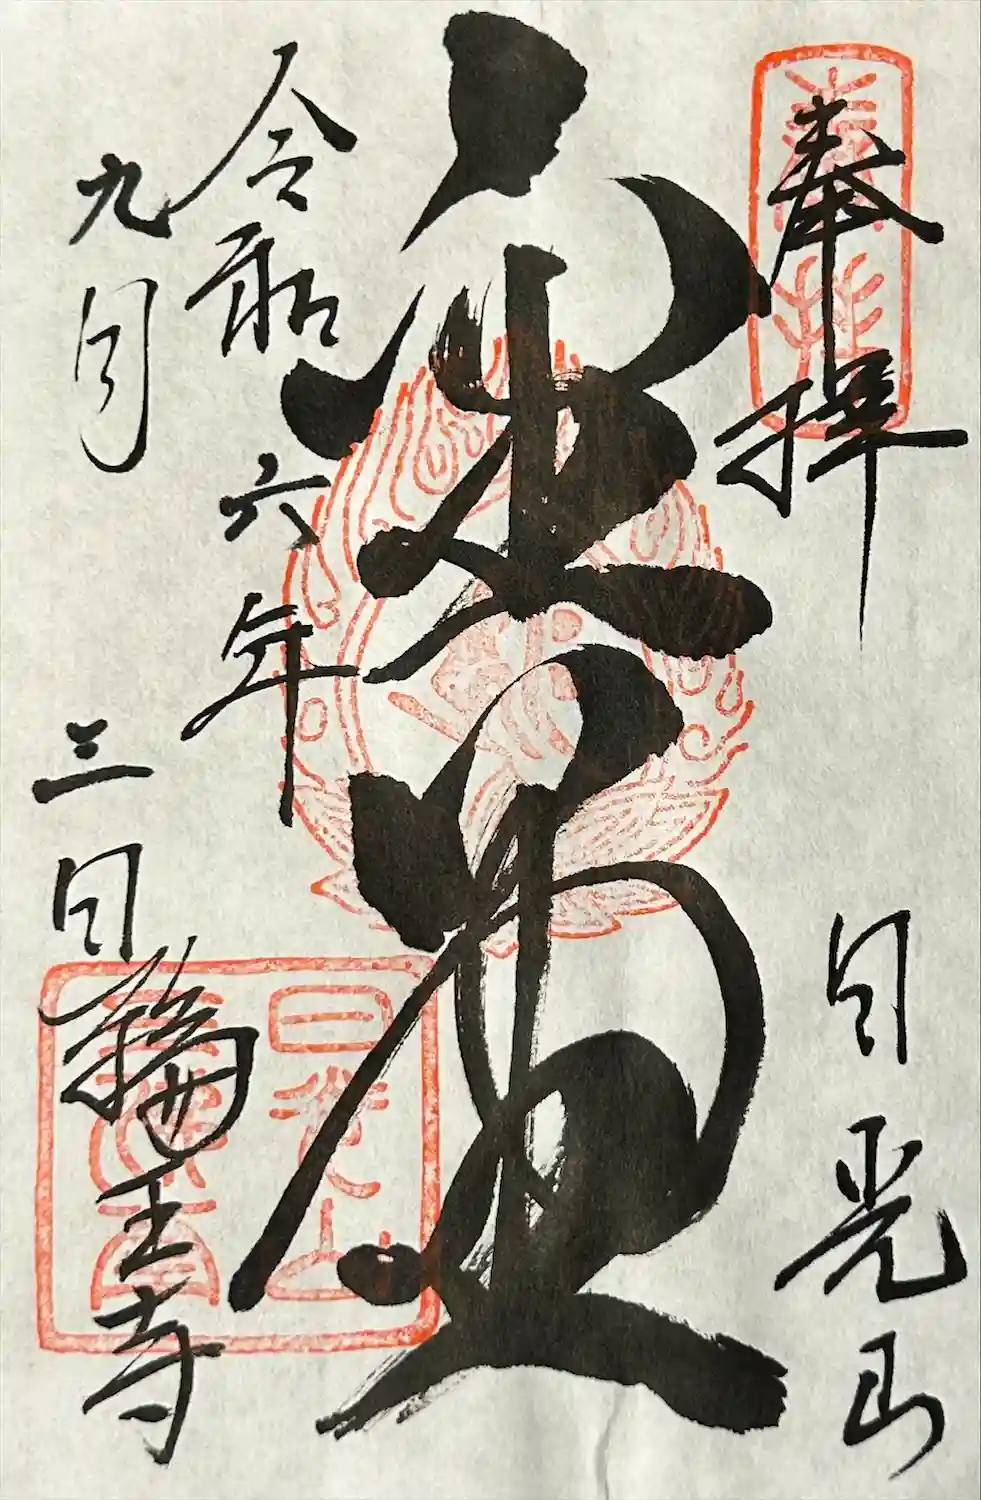 奉拝
日光山
金堂
令和六年
九月三日
輪王寺
日光山